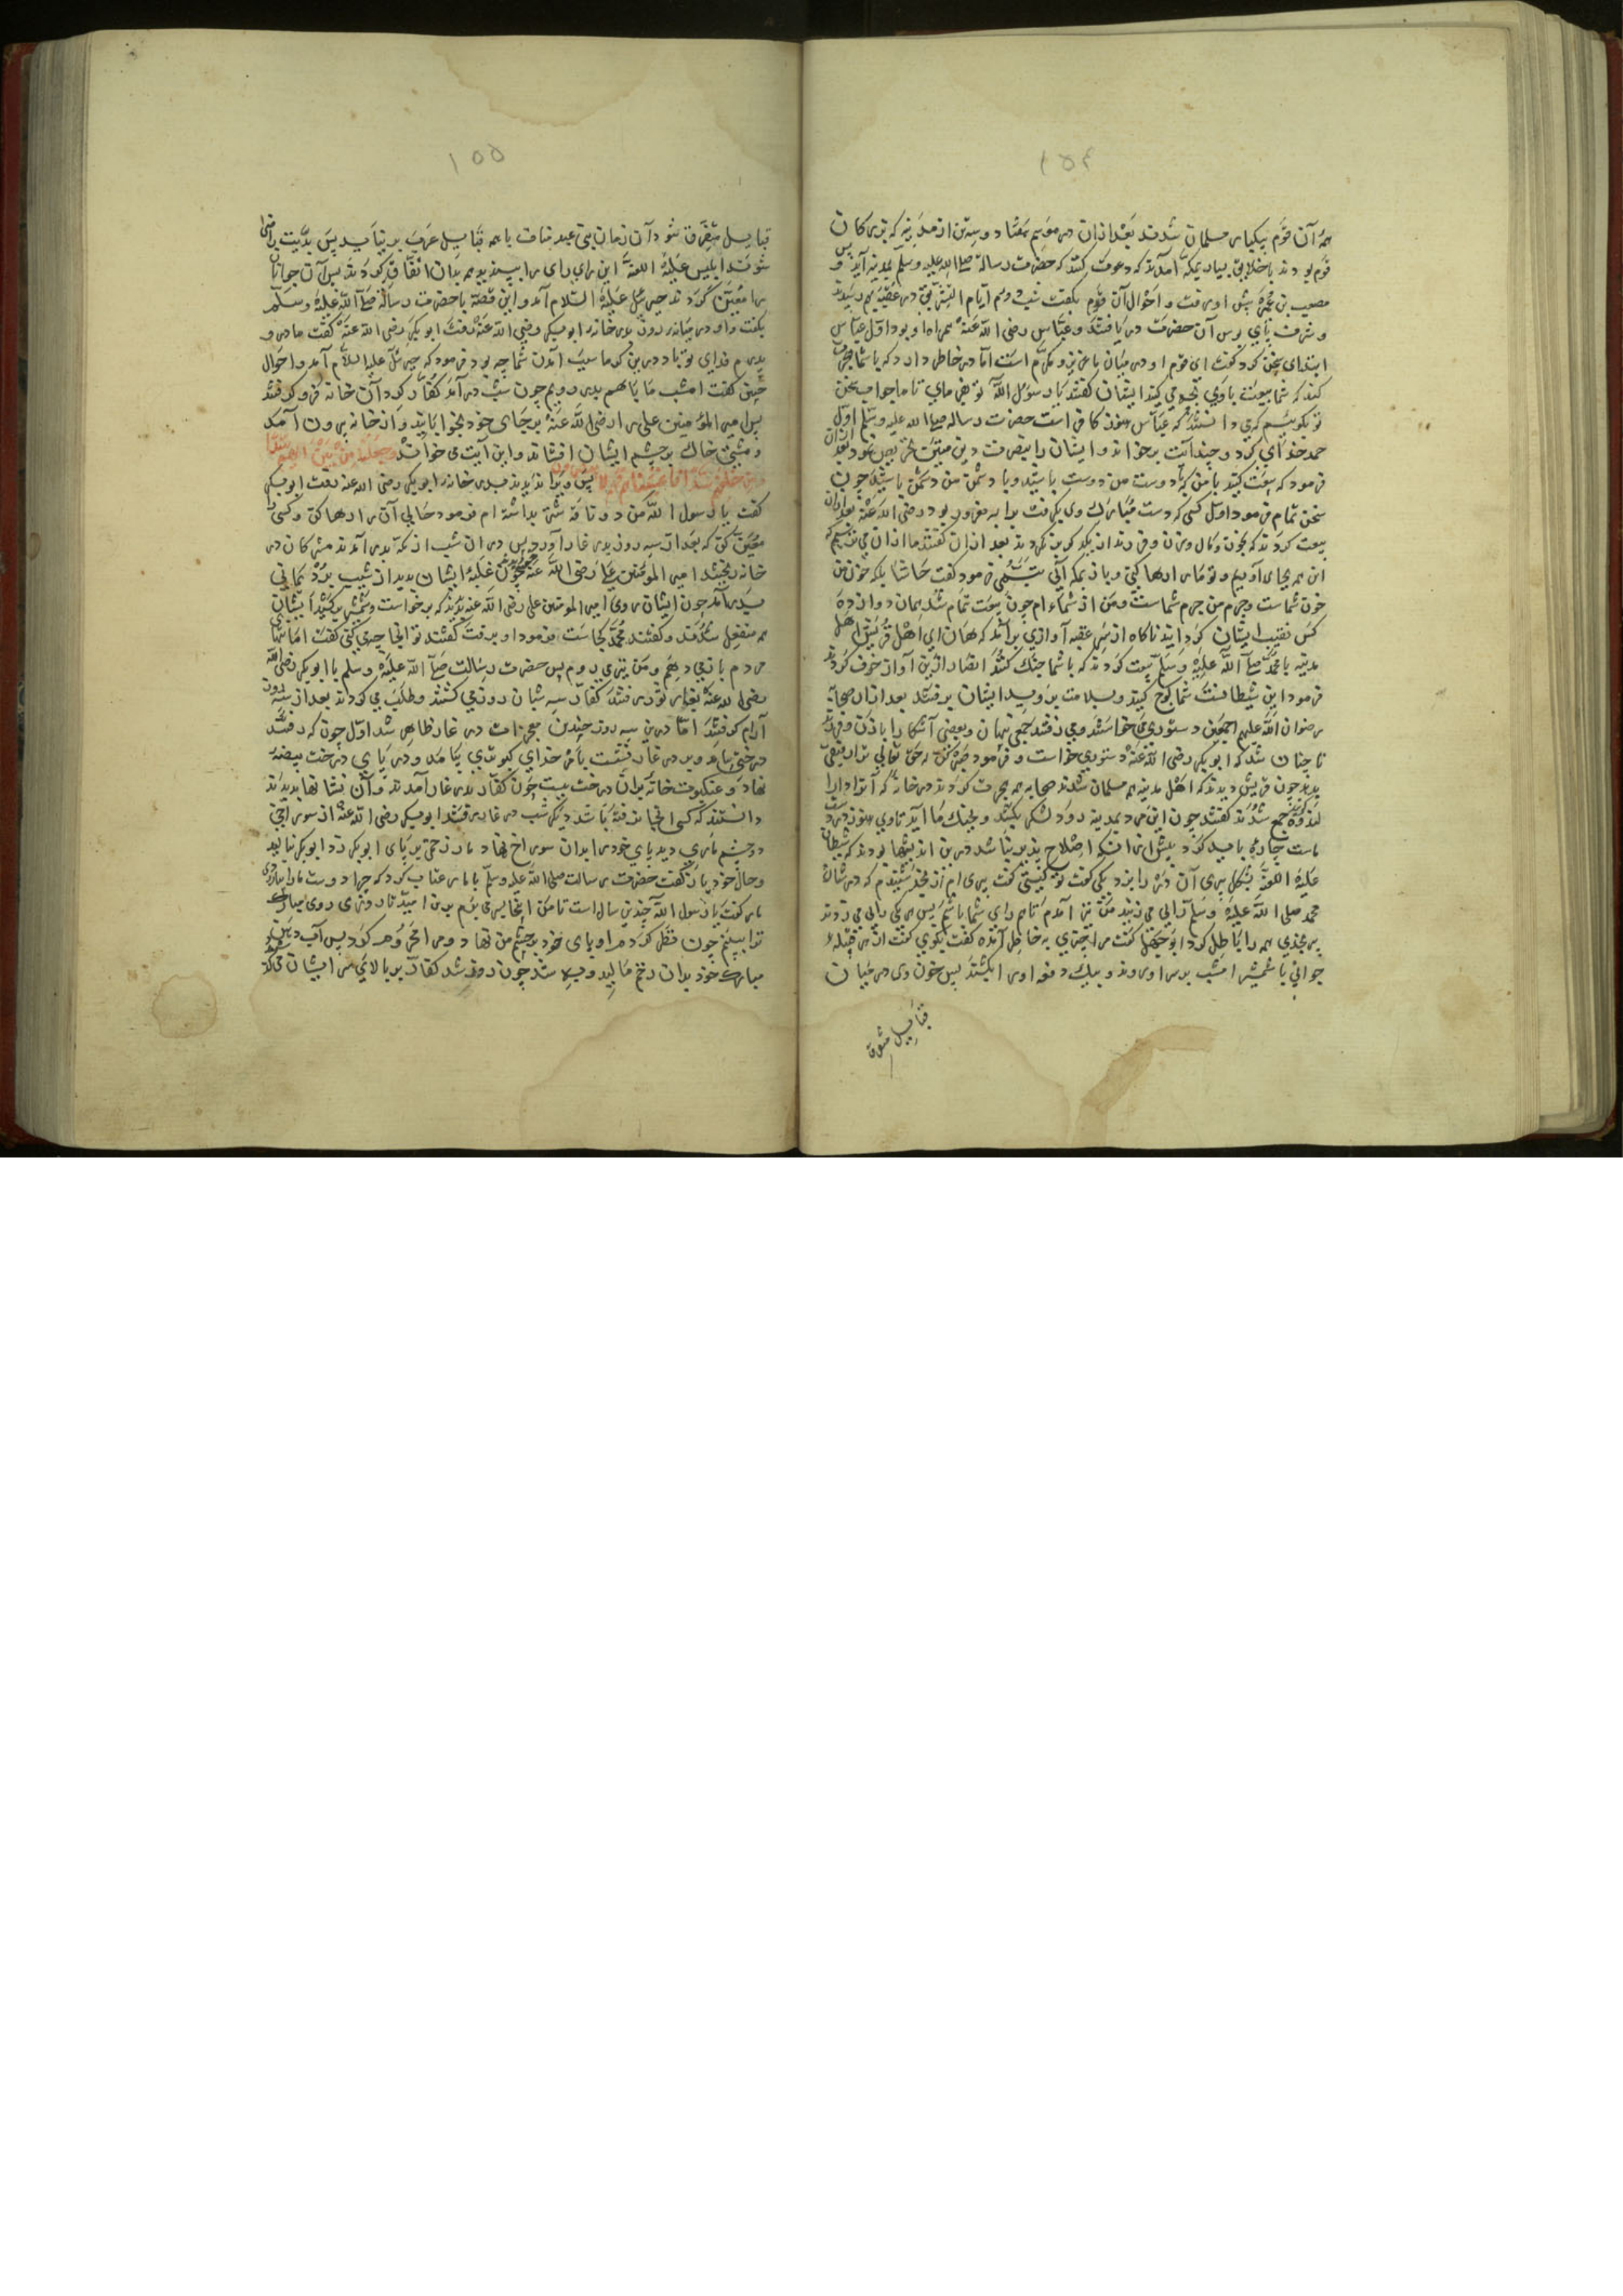 ۱۵۴
همه آن قوم بیکبار مسلمان شدند بعد ازان در موسم هفتاد و سه تن از مدینه که بزرکان
قوم بودند با خلایق بسیار بمکه آمدند که دعوت کنند که حضرت رسالة صلی الله علیه وسلم بمدینه آید پس
مصعب بن عمیر پیش او رفت و احوال آن قوم بکفت شب دوم ایام التشریق در عقبه بهم رسیدند
و شرف پای بوس آن حضرت دریافتند و عباس رضی الله عنه همراه او بود اول عباس
ابتدای سخن کرد کفت ای قوم او در میان ما عزیز و مکرم است اما در خاطر دارد که با شما هجرت
کند که شما بیعت با وی بچه می کنید ایشان کفتند یا رسول الله تو هی مای تا ما جواب سخن
تو بکوییم که می دانستند که عباس هنوز کافر است حضرت رساله صلی الله علیه وسلم اول
حمد خدای کرد و چند آیت برخواند و ایشان را بنصرت دین مبین تحریص نمود بعد ازان
فرمود که بیعت کنید با من که با دوست من دوست باشید و با دشمن من دشمن باشید چون
سخن تمام فرمود اول کسی که دست مبارک وی بکرفت براء بن معرور بود رضی الله عنه بعد ازان
بیعت کردند که بخون و مال و زن و فرزند از یکدیکر نکردند بعد ازان کفتند ما ازان می ترسیم که
این همه بجای آوریم و تو ما را رها کنی و باز بمکه آئی تبسمی فرمود کفت حاشا بلکه خون من
خون شماست و جرم من جرم شماست و من از شماء ام چون بیعت تمام شد همان دوازده
کس نقیب ایشان کردانید ناکاه از سر عقبه آوازی برآمد که هان ای اهل قریش اهل
مدینه با محمد صلی الله علیه وسلم بیعت کردند که با شما جنک کنند انصار ازین آواز خوف کردند
فرمود این شیطانست شما کوچ کنید و بسلامت بروید ایشان برفتند بعد ازان صحابه
رضوان الله علیهم اجمعین دستوری می خواستند و می رفتند جمعی پنهان و بعضی آشکارا با زن و فرزند
تا چنان شد که ابوبکر رضی الله عنه دستوری خواست و فرمود صبر کن که حق تعالی ترا رفیقی
بدید چون قریش دیدند که اهل مدینه همه مسلمان شدند صحابه همه هجرت کردند در خانه که آنرا دار
الندوه جمع شدند کفتند چون این مرد بمدینه رود لشکر بکشد و بجنک ما آید تا وی هنوز در دست
ماست چاره باید کرد پیش ازان که اصلاح پذیر نباشد درین اندیشها بودند که شیطان
علیه اللعنة بشکل پیری آن در را بزد یکی کفت تو کیستی کفت پیری ام از نجد شنیدم که در شان
محمد صلی الله علیه وسلم رایی می زنید من نیز آمدم تا هم رای شما باشم پس هر یکی رایی می زدند
پیر نجدی همه را باطل کرد ابوجهل کفت مرا چیزی بخاطر آمده کفت بکوی کفت از هر قبیله
جوانی با شمشیر امشب بدر او روند و بیک دفعه او را بکشند پس خون وی در میان
قبایل متفرق
۱۵۵
قبایل متفرق شود آن زمان بنی عبد مناف با همه قبایل عرب برنیاید پس بدیت راضی
شوند ابلیس علیه اللعنة این رای را بپسندید همه بدان اتفاق کردند پس آن جوانان
را معین کردند جبرئیل علیه السلام آمد و این قصه با حضرت رسالة صلی الله علیه وسلم
بکفت و او در میانه روز بدر خانه ابوبکر رضی الله عنه رفت ابوبکر رضی الله عنه کفت مادر و
پدرم فدای تو باد درین کرما سبب آمدن شما چه بود فرمود که جبرئیل علیه السلام آمد و احوال
چنین کفت امشب ما با هم بدر رویم چون شب درآمد کفار کرد آن خانه فرو کرفتند
پس امیر المؤمنین علی را رضی الله عنه بر جای خود بخوابانید و از خانه بیرون آمد
و مشتی خاک بر چشم ایشان افشاند و این آیت می خواند وجعلنا من بین ایدیهم سدا
ومن خلفهم سدا فاغشیناهم فهم لا یبصرون پس ویرا ندیدند بدر خانه ابوبکر رضی الله عنه رفت ابوبکر
کفت یا رسول الله من دو ناقه شتر بداشته ام فرمود حالی آن را رها کن و کسی
معین کن که بعد از سه روز بدر غار آورد پس در آن شب از مکه بدر آمدند مشرکان در
خانه رفتند امیر المؤمنین علی رضی الله عنه چون غلبه ایشان بدید از شیب برد یمانی
بیرون آمد چون ایشان روی امیر المومنین علی رضی الله عنه بدیدند که برخواست و شمشیر بکشید ایشان
همه منفعل شدند و کفتند محمد کجاست فرمود او برفت کفتند تو اینجا چه می کنی کفت امانتهای
مردم باز می دهم و من نیز می روم پس حضرت رسالت صلی الله علیه وسلم با ابوبکر رضی الله
عنه بغار ثور در رفتند کفار سه شبان روز می کشتند و طلب می کردند بعد از سه روز
آرام کرفتند اما درین سه روز چندین معجزات در غار ظاهر شد اول چون که رفتند
درختی بیامد و بر در غار برست بامر خدای کبوتری بیامد و در پای درخت بیضه
نهاد و عنکبوت خانه بران درخت ببست چون کفار بدر غار آمدند و آن نشانها بدیدند
دانستند که کسی انجا نرفته باشد دیکر شب در غار رفتند ابوبکر رضی الله عنه از سوراخی
دو چشم ماری دید پای خود را بدان سوراخ نهاد مار زخمی بر پای ابوبکر زد ابوبکر بنالید
و حال خود باز کفت حضرت رسالت صلی الله علیه وسلم با مار عتاب کرد که چرا دوست مارا بیازردی
مار کفت یا رسول الله چندین سال است تا من اینجا بسر می برم بدین امید تا روزی روی مبارک
ترا ببینم چون نظر کردم او پای خود بر چشم من نهاد و مرا محروم کرد پس آب دهن
مبارک خود بدان زخم مالید و به شد چون روز شد کفار بر بالای سر ایشان می کذ